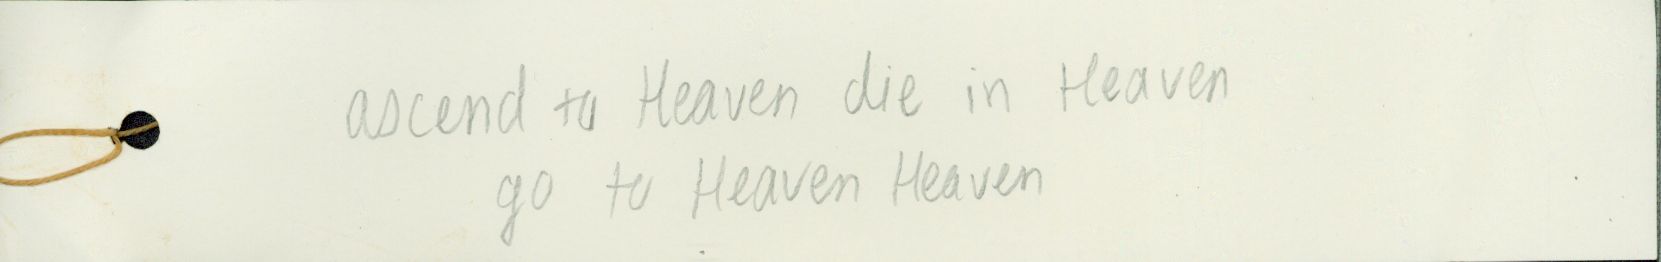 ascend to Heaven die in Heaven
go to Heaven Heaven